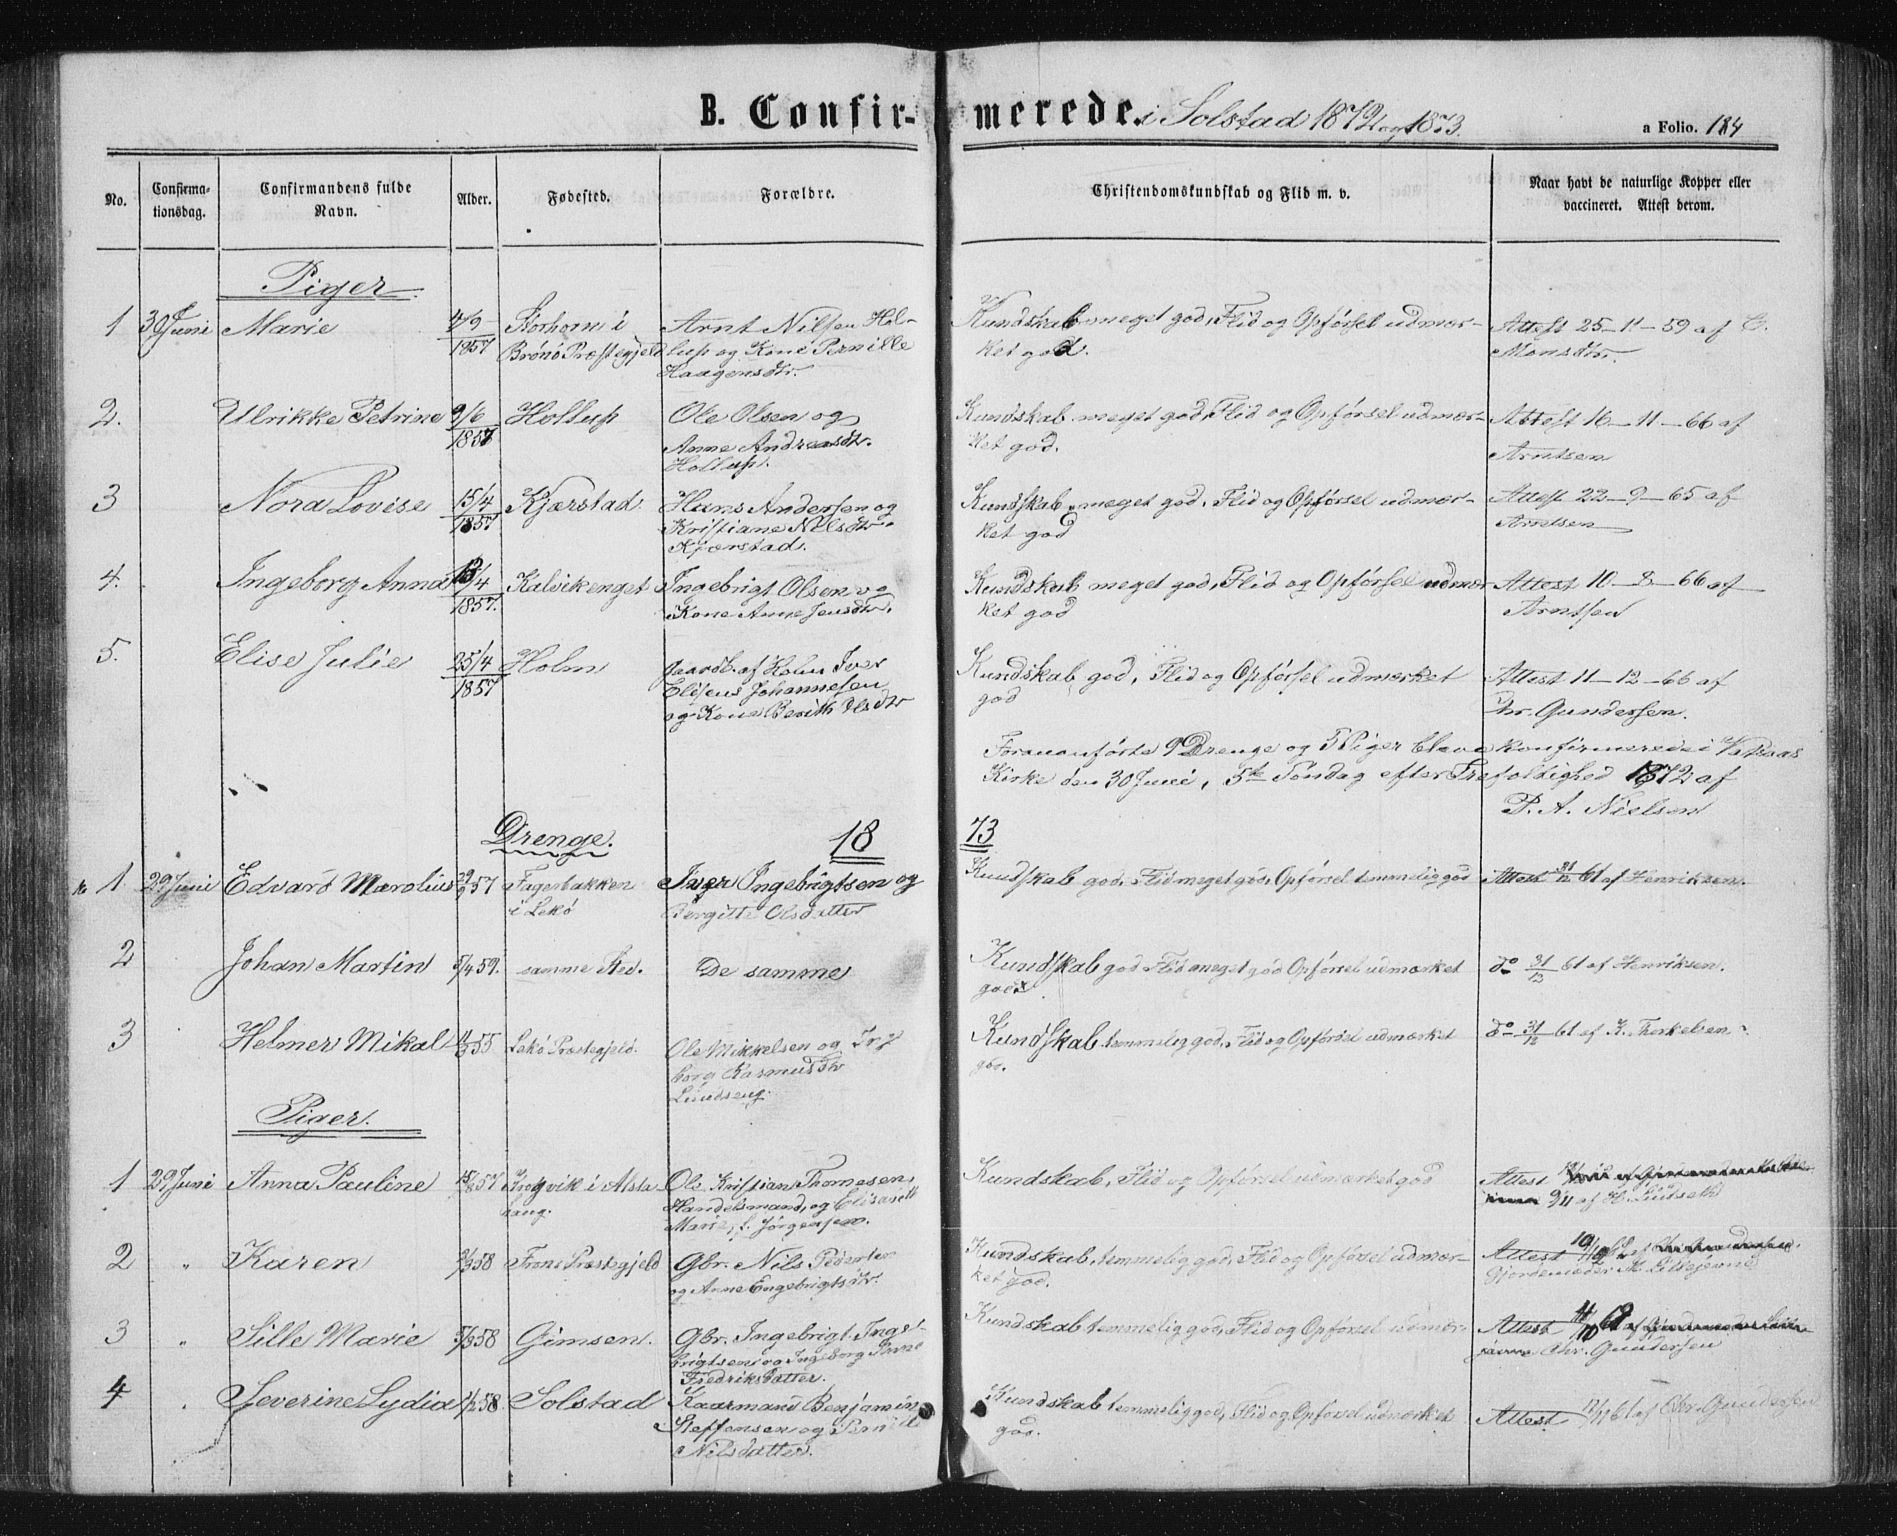 B. Confir- merede. i Solstad 1872 og 1873.
a Folio. 184
No.
Confirma-
tionsdag.
Confirmandens fulde
Navn.
Alder.
Fødested.
Forældre.
Christendomskundskab og Flid m. v.
Naar havt de naturlige Kopper eller
vaccineret. Attest derom.
Piger
1 30 Juni Marie 4/9 1857 Storhorn i
Brønø Præstegjeld
Arnt Nilsen Hol-
lup og Kone Pernille
Haagensdtr.
Kundskab meget god, Flid og Opførsel udmær-
ket god.
Attest 25-11-59 af C.
Monsdtr.
2. Ulrikke Petrine 9/6 1857 Hollup
Ole Olsen og
Anne Andreasdtr.
Hollup.
Kundskab meget god, Flid og Opførsel udmær-
ket god.
Attest 16-11-66 af
Arntsen
3 Nora Lovise 15/4 1857 Kjærstad
Hans Andersen og
Kristiane Nilsdtr.
Kjærstad.
Kundskab meget god, Flid og Opførsel udmær-
ket god
Attest 22-9-65 af
Arntsen
4. Ingeborg Anna 13/4 1857. Kalvikenget
Ingebrigt Olsen og
Kone Anne Jensdtr.
Kundskab meget god, Flid og Opførsel udmær-
ket god
Attest 10-8-66 af
Arntsen
5. Elise Julie 25/4 1857 Holm
Gaardb. af Holm Iver
Eliseus Johannesen
og Kone Berith Olsdtr
Kundskab god, Flid og Opførsel udmærket
god
Attest 11-12-66 af
Chr. Gundersen.
Forananførte 9 Drenge og 5 Piger bleve konfirmerede i Vatsaas
Kirke den 30 Juni, 5te Søndag efter Trefoldighed 1872 af
P. A. Nielsen
Drenge. 18 73
1 29 Juni Edvard Marolius 29/9 57 Fagerbakken
i Lekø
Inger Ingebrigtsen og
Bergitte Olsdatter
Kundskab god, Flid meget god, Opførsel temmelig god
Attest 31/12 61 af Henriksen.
2 Johan Martin 5/4 59. samme Sted. De samme
Kundskab god, Flid meget god Opførsel udmærket
god
do 31/12 61 af Henriksen.
3 Helmer Mikal 55 Lekø Præstegjeld.
Ole Mikkelsen og
borg Rasmusdtr
Lindseng.
Kundskab temmelig god, Flid og Opførsel udmærket
god.
do 31/12 61 af K. Therkelsen
Piger.
1 29 Juni Anna Pauline 15/8 57 i Alsta
haug.
Ole Kristian Thomesen,
Handelsmand, og Elisabeth
Marie, f. Jørgensen.
Kundskab, Flid og Opførsel udmærket god
Attest
9/11 af H.
2 " Karen 2/3 58 Præstegjeld
Gbr. Nils Pedersen
og Anne Engebrigtsdtr.
Kundskab temmelig god, Flid og Opførsel udmær-
ket god.
Attest 19/10
Gjordemoder M.
3 " Sille Marie 5/3 58 Gimsen.
Gbr. Ingebrigt Inge-
brigtsen og Ingeborg Anne
Fredriksdatter.
Kundskab temmelig god, Flid og Opførsel udmær-
Attest 11/10 62 af
Chr. Gundersen
4 Severine Lydia 58 Solstad
Kaarmand Benjamin
Steffensen og Pernille
Nilsdatter.
Kundskab temmelig god, Flid og Opførsel udmærket
god.
Attest 61 af Chr. Gundersen